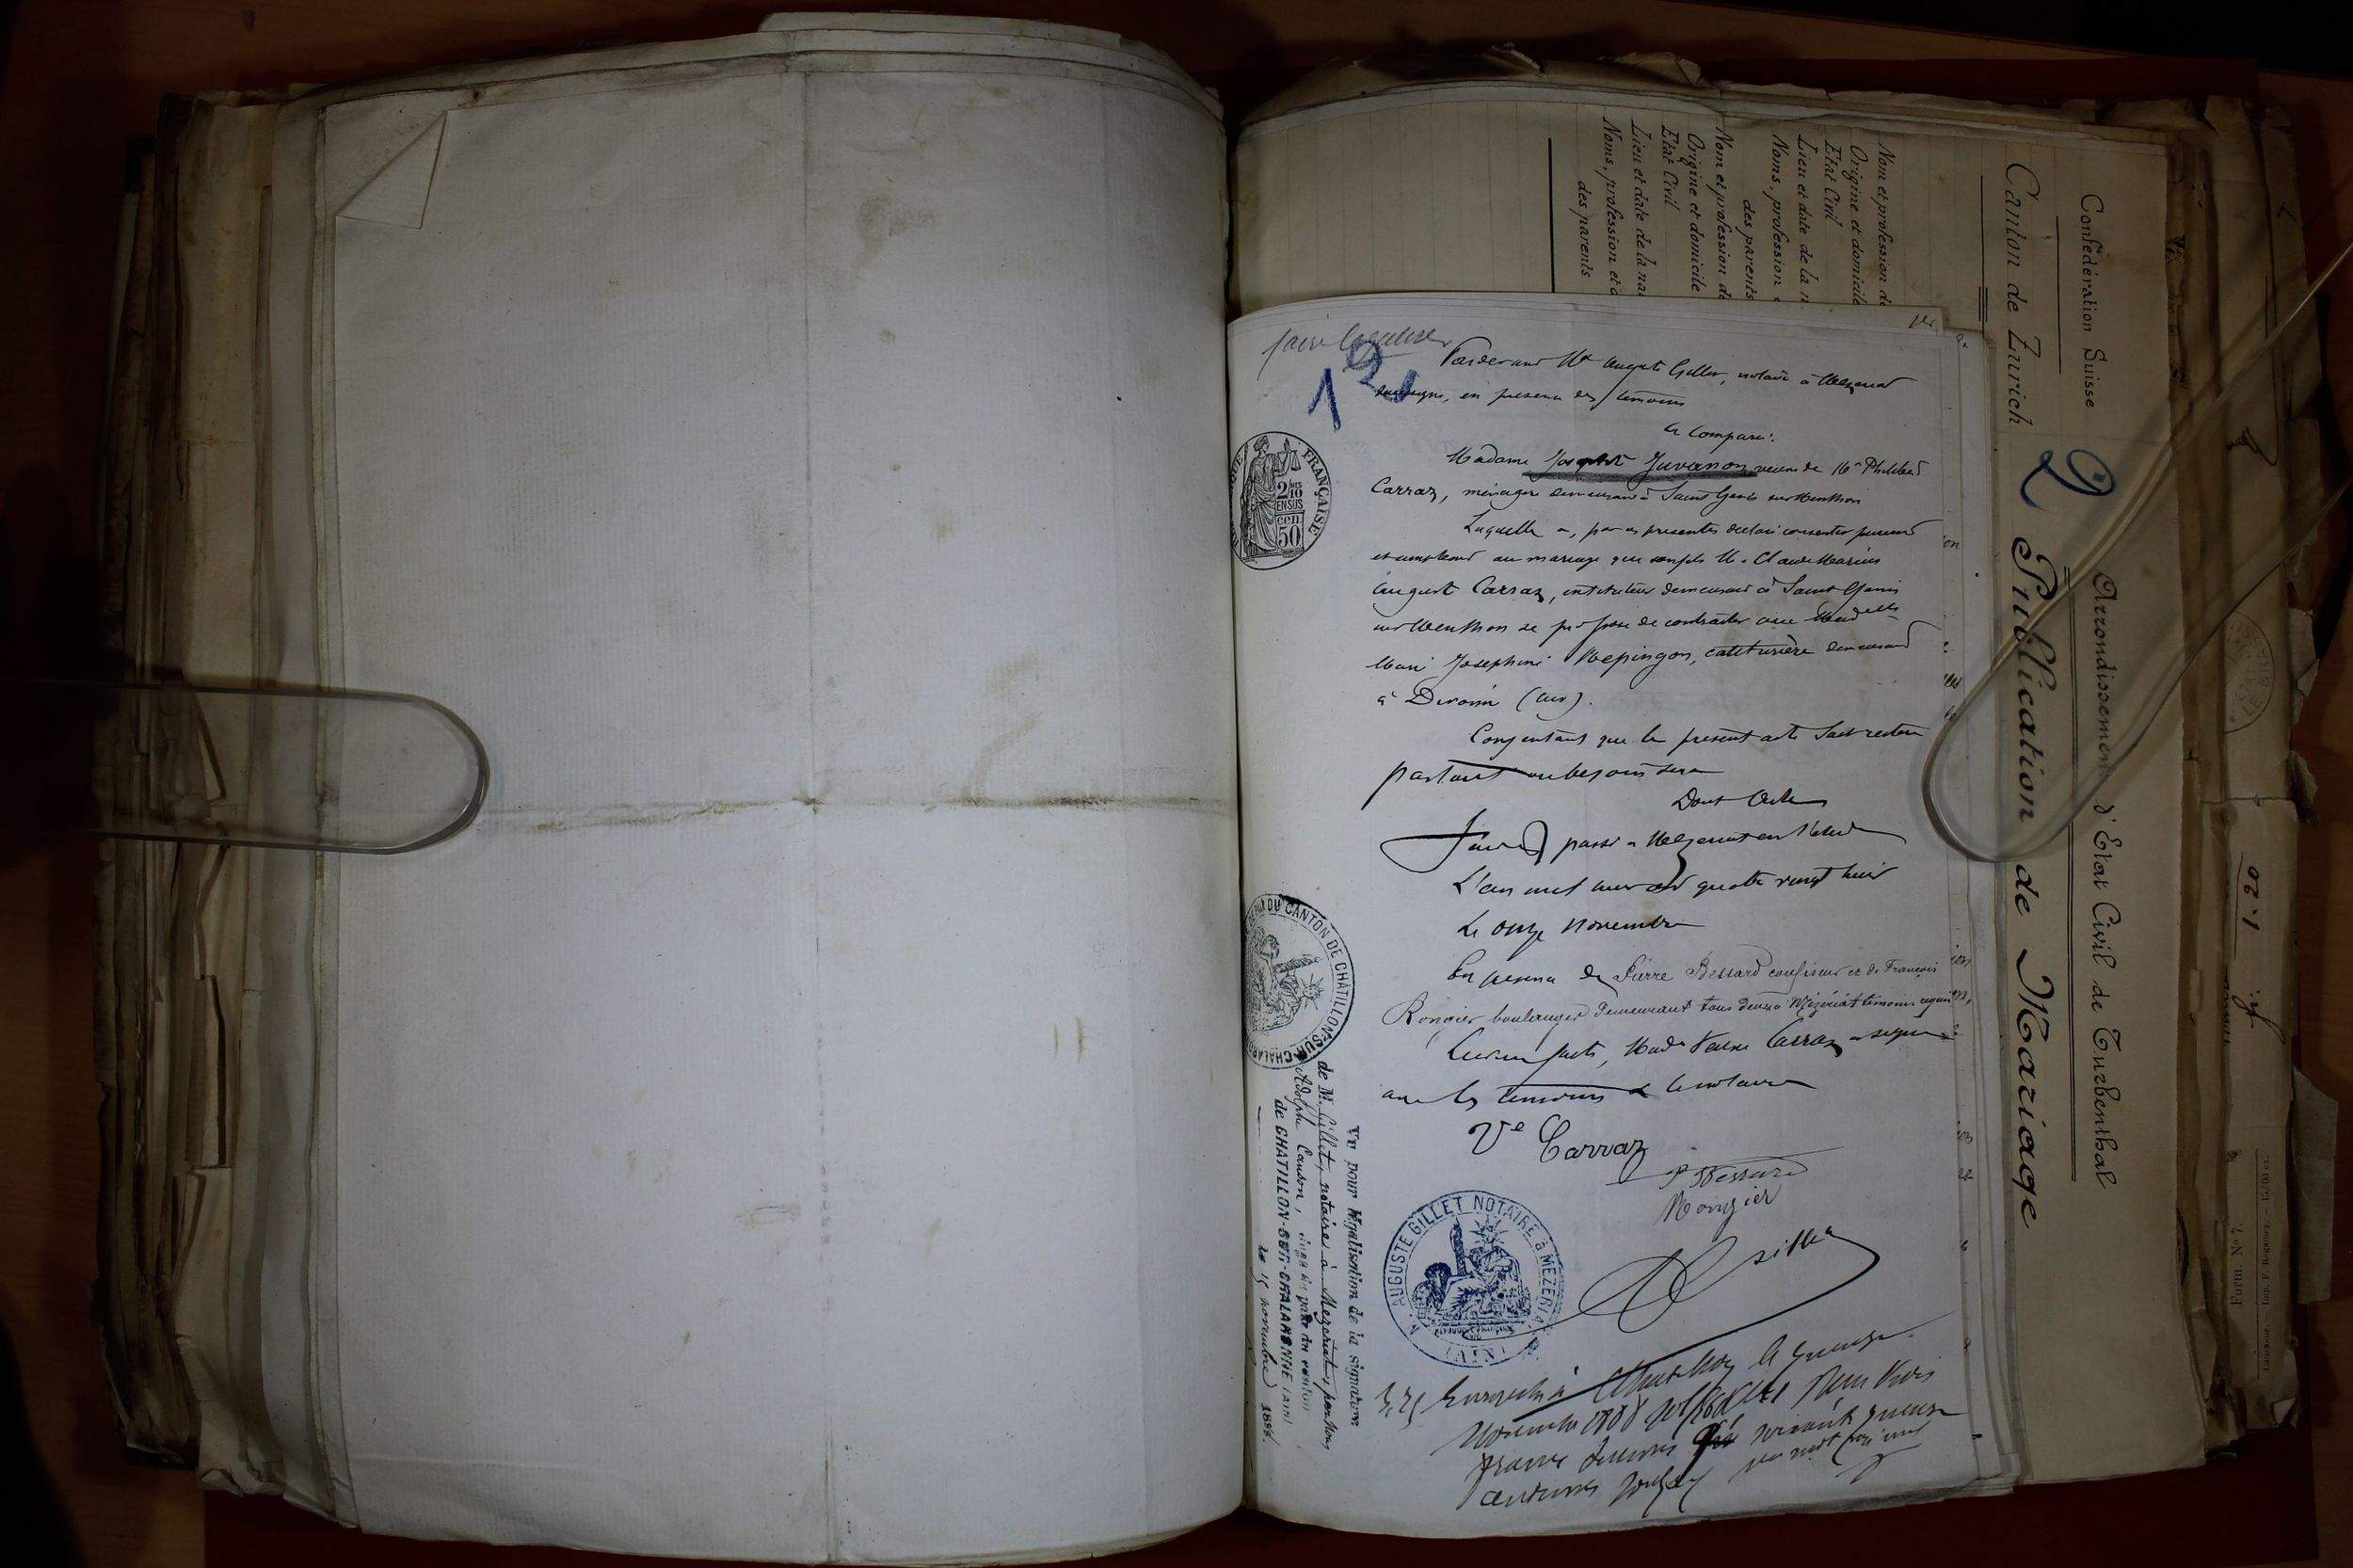 faire légaliser
12
Pardevant Me Auguste Gillet, notaire à Mezeriat
soussigné, en présence des témoins
a Comparu:
Madame Josephte Juvanon veuve de Mr Philibert
Carraz, ménagère demeurant à Saint Genis sur Menthon
Laquelle a, par ces présentes déclaré consentir purement
et simplement au mariage que son fils M. Claude Marius
August Carraz, instituteur demeurant à Saint Genis
sur Menthon se propose de contracter avec Madelle
Marie Josephine Mepingon, couturière demeurant
à Divonne (Ain).
Consentant que le présent acte soit
partout où besoin sera
Dont Acte
Fait & passé à Mezeriat en l'étude
L'an mil huit cent quatre vingt huit
Le onze novembre
En présence de Pierre Bessard confiseur et de François
Rongier boulanger demeurant tous deux à Mézériat témoins requis
Lecture faite, Made Veuve Carraz a signé
avec les témoins & le notaire
Ve Carraz
P Bessard
Rongier
Gillet
Enregistré à Chatillon le quinze
Novembre 1888
francs
centimes
RÉPUBLIQUE FRANÇAISE
2/10 MES
EN SUS
50 cen
DU CANTON DE CHATILLON SUR CHALAR
Vu pour légalisation de la signature
de M. Gillet, notaire à Mézériat, par Nous
Adolphe Causon, Juge de paix du canton
de CHATILLON-SUR-CHALARONNE (AIN)
Le 15 novembre 1888.
M. AUGUSTE GILLET NOTAIRE à MEZERIAT
(AIN)
Confédération Suisse
Arrondissement d'Etat Civil de Turbenthal
Canton de Zurich
2
Publication de Mariage
Nom et profession de
Origine et domicile
Etat Civil
Lieu et date de la n
Noms, profession
des parents
Nom et profession de
Origine et domicile
Etat Civil
Lieu et date de la nai
Noms, profession et d
des parents
1.20
Form. No 7.